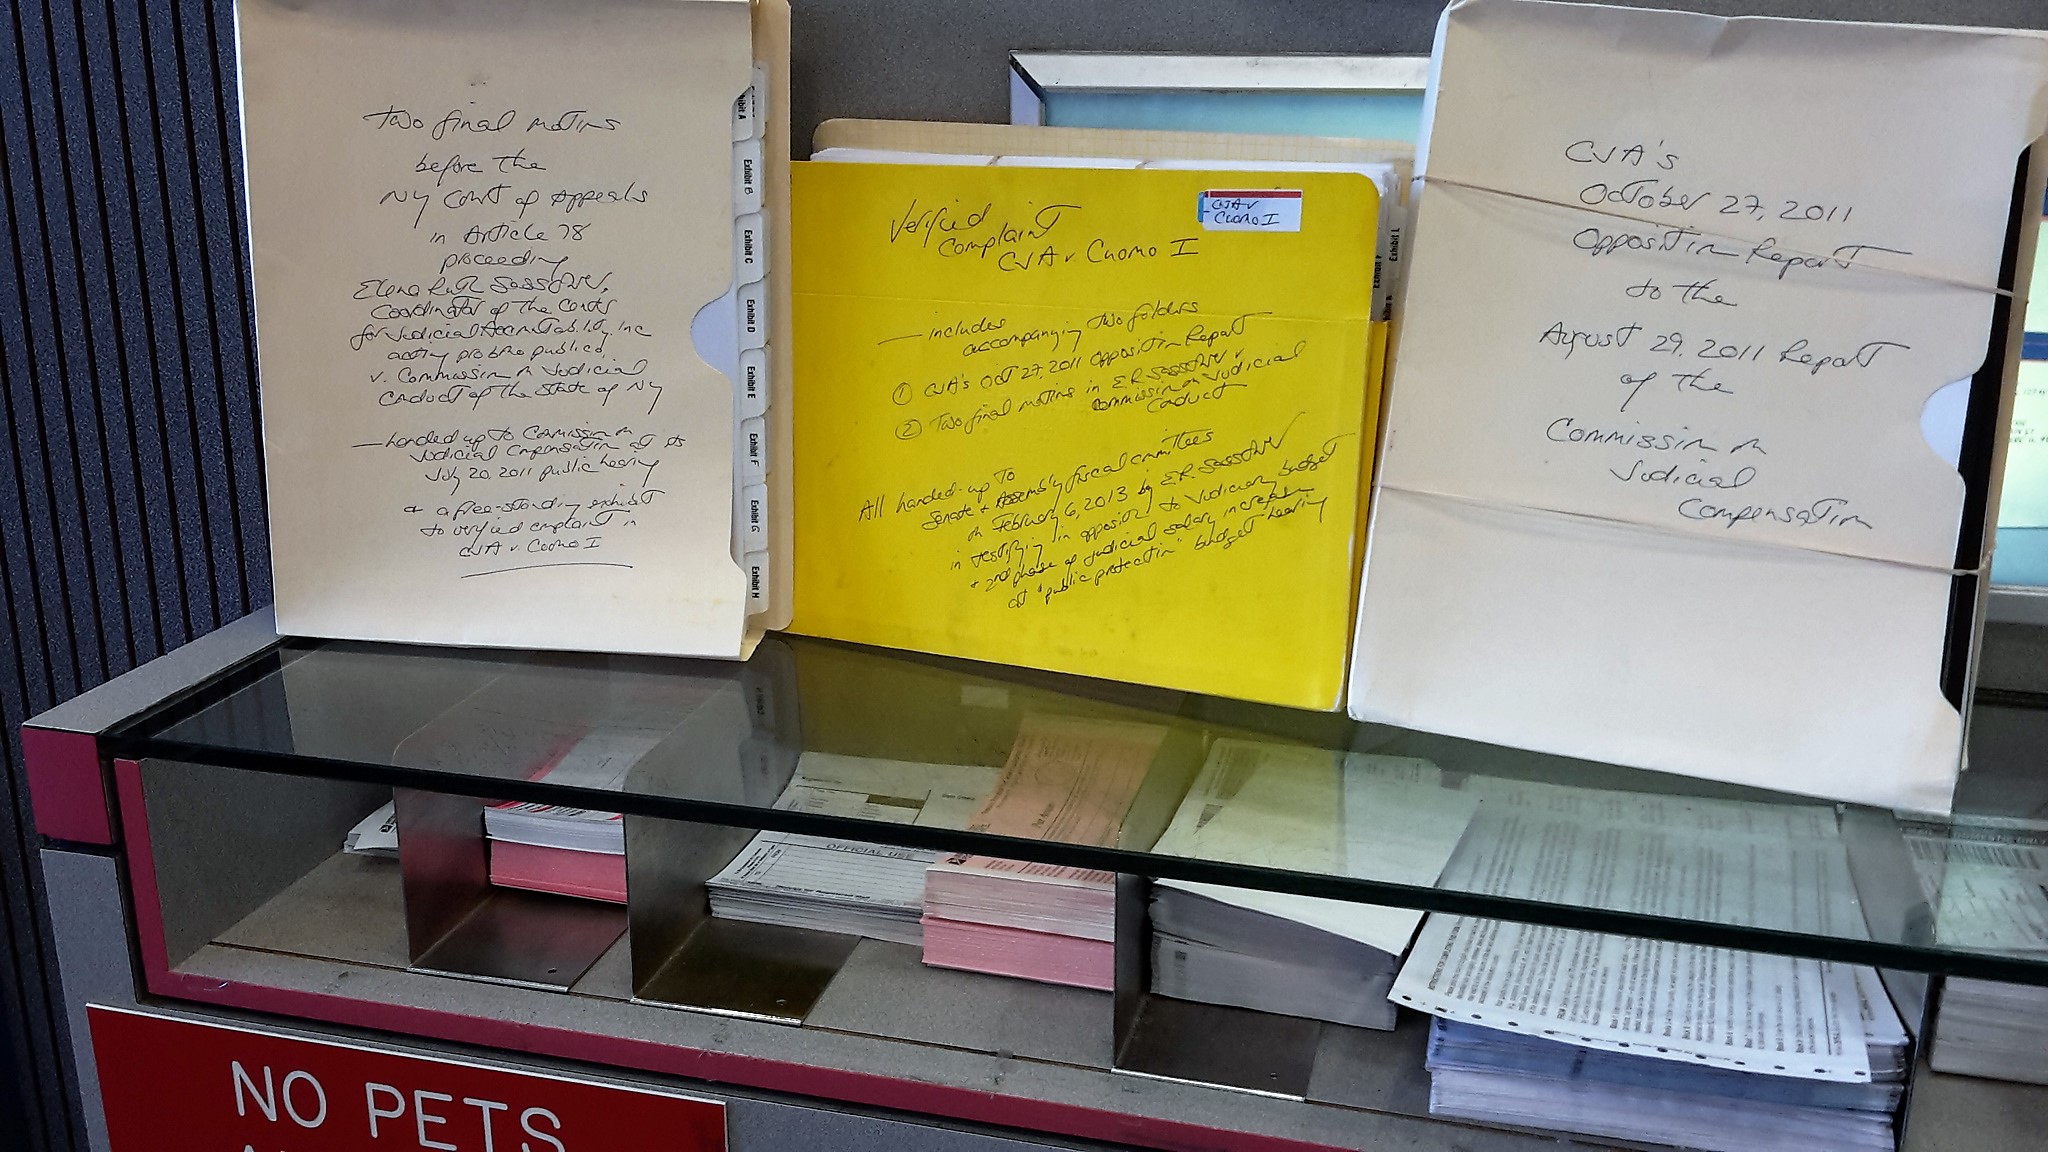 two final motions
before the
NY Court of Appeals
in Article 78
proceeding
Elena Ruth Sassower,
Coordinator of the Center
for Judicial Accountability, Inc
acting pro bono publico,
v. Commission on Judicial
Conduct of the State of NY
— handed up to Commission on
Judicial Compensation at its
July 20, 2011 public hearing
+ a free-standing exhibit
to verified complaint in
CJA v Cuomo I
Exhibit A
Exhibit B
Exhibit C
Exhibit D
Exhibit E
Exhibit F
Exhibit G
Exhibit H
CJA v
Cuomo I
Verified
Complaint
CJA v Cuomo I
— includes
accompanying two folders
① CJA's Oct 27, 2011 Opposition Report
② Two final motions in E.R. Sassower v
Commission on Judicial
Conduct
All handed-up to
Senate + Assembly fiscal committees
on February 6, 2013 by E.R. Sassower
in testifying in opposition to Judiciary budget
+ 2nd phase of judicial salary increase
at "public protection" budget hearing
Exhibit F
Exhibit L
CJA's
October 27, 2011
Opposition Report
to the
August 29, 2011 Report
of the
Commission on
Judicial
Compensation
OFFICIAL USE
NO PETS